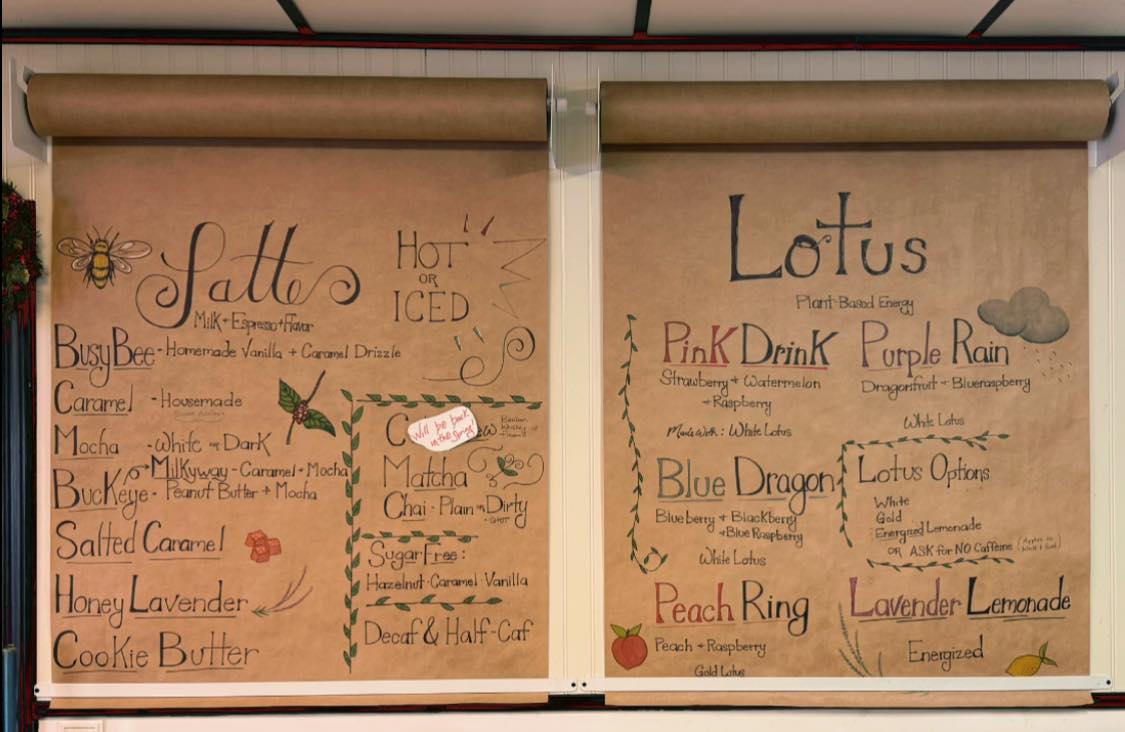 Latte
Milk + Espresso + Flavor
HOT
OR
ICED
Busy Bee - Homemade Vanilla + Caramel Drizzle
Caramel - Housemade
Mocha - White or Dark
Milkyway - Caramel + Mocha
Buckeye - Peanut Butter + Mocha
Salted Caramel
Honey Lavender
Cookie Butter
C
Will be back
in the Spring
ew
Matcha
Chai - Plain or Dirty
Sugar Free:
Hazelnut · Caramel · Vanilla
Decaf & Half-Caf
Lotus
Plant-Based Energy
Pink Drink
Strawberry + Watermelon
+ Raspberry
Made with: White Lotus
Purple Rain
Dragonfruit + Blueraspberry
White Lotus
Blue Dragon
Blueberry + Blackberry
+ Blue Raspberry
White Lotus
Lotus Options
White
Gold
Energized Lemonade
OR ASK for NO Caffeine
Peach Ring
Peach + Raspberry
Gold Lotus
Lavender Lemonade
Energized